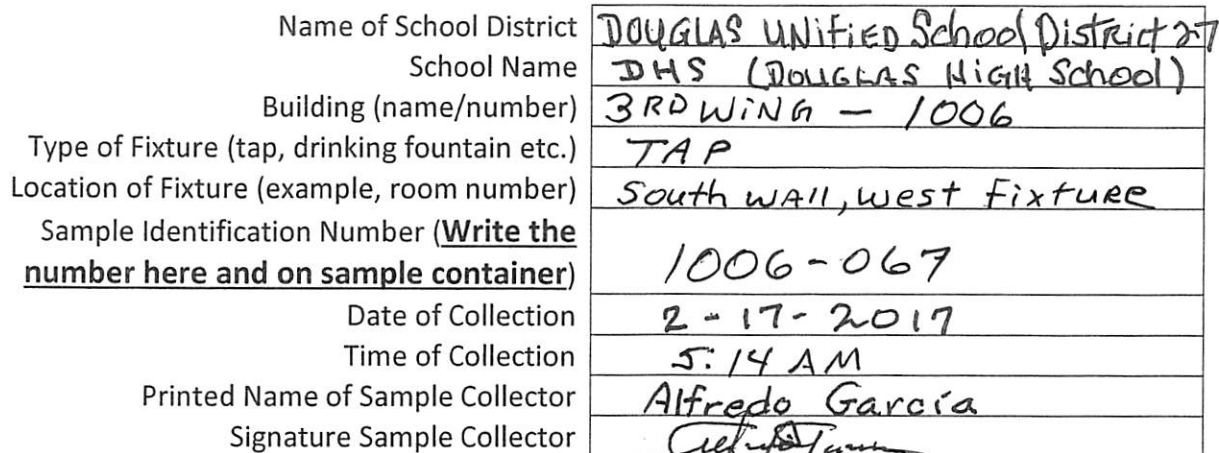 Name of School District DOUGLAS UNiFiED School District 27
School Name DHS (DOUGLAS HiGH School)
Building (name/number) 3RD WiNG - 1006
Type of Fixture (tap, drinking fountain etc.) TAP
Location of Fixture (example, room number) South WAll, west Fixture
Sample Identification Number (Write the
number here and on sample container) 1006-067
Date of Collection 2-17-2017
Time of Collection 5:14 AM
Printed Name of Sample Collector Alfredo García
Signature Sample Collector